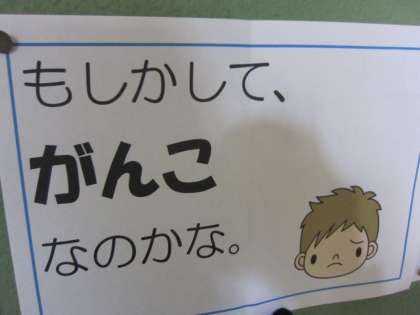 もしかして、
がんこ
なのかな。